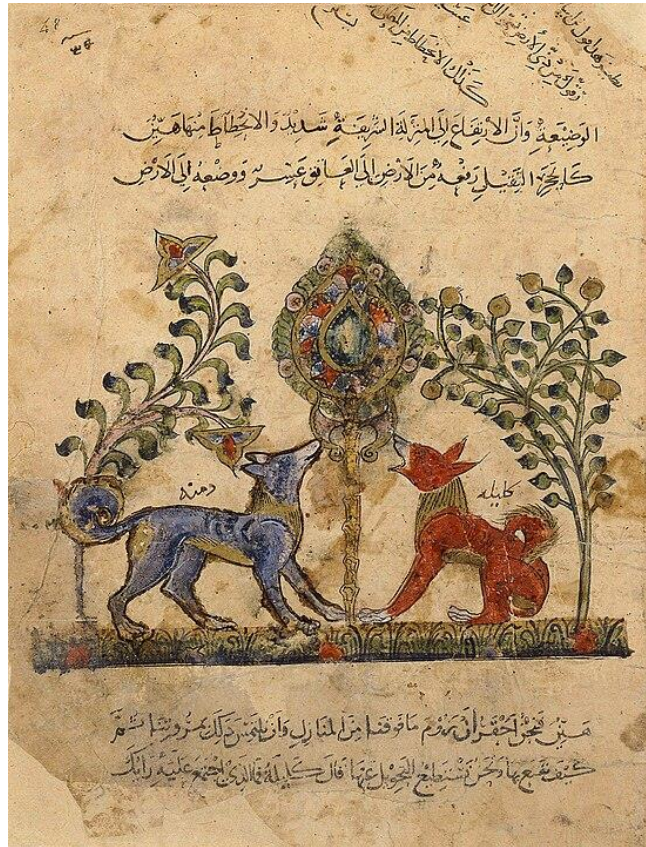 الوضيعة وان الارتفاع الى المنزلة الشريفة شديد والانحطاط منها هين
كالحجر الثقيل رفعه من الارض الى العاتق عسر ووضعه الى الارض
دمنه
كليله
هين فنحن احق ان نروم ما فوقنا من المنازل وان نلتمس ذلك بمروتنا ثم
كيف نقنع بها ونحن نستطيع التحويل عنها قال كليلة فما الذي اجتمع عليه رايك